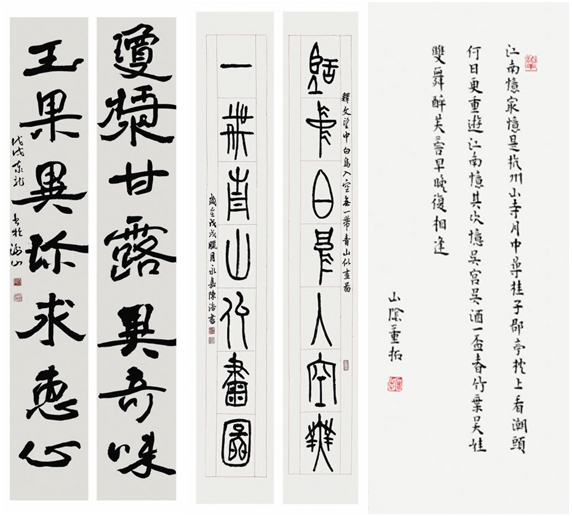 江南憶最憶是杭州山寺月中尋桂子郡亭枕上看潮頭
何日更重遊江南憶其次憶吳宮吳酒一盃春竹葉吳娃
雙舞醉芙蓉早晚復相逢
山陰
釋文望中白鳥入空無一帶青山似畫圖
望中白鳥入空無
一帶青山似畫圖
戊戌臘月永嘉陳浩書
瓊漿甘露異奇味
玉果異珍求惠心
戊戌